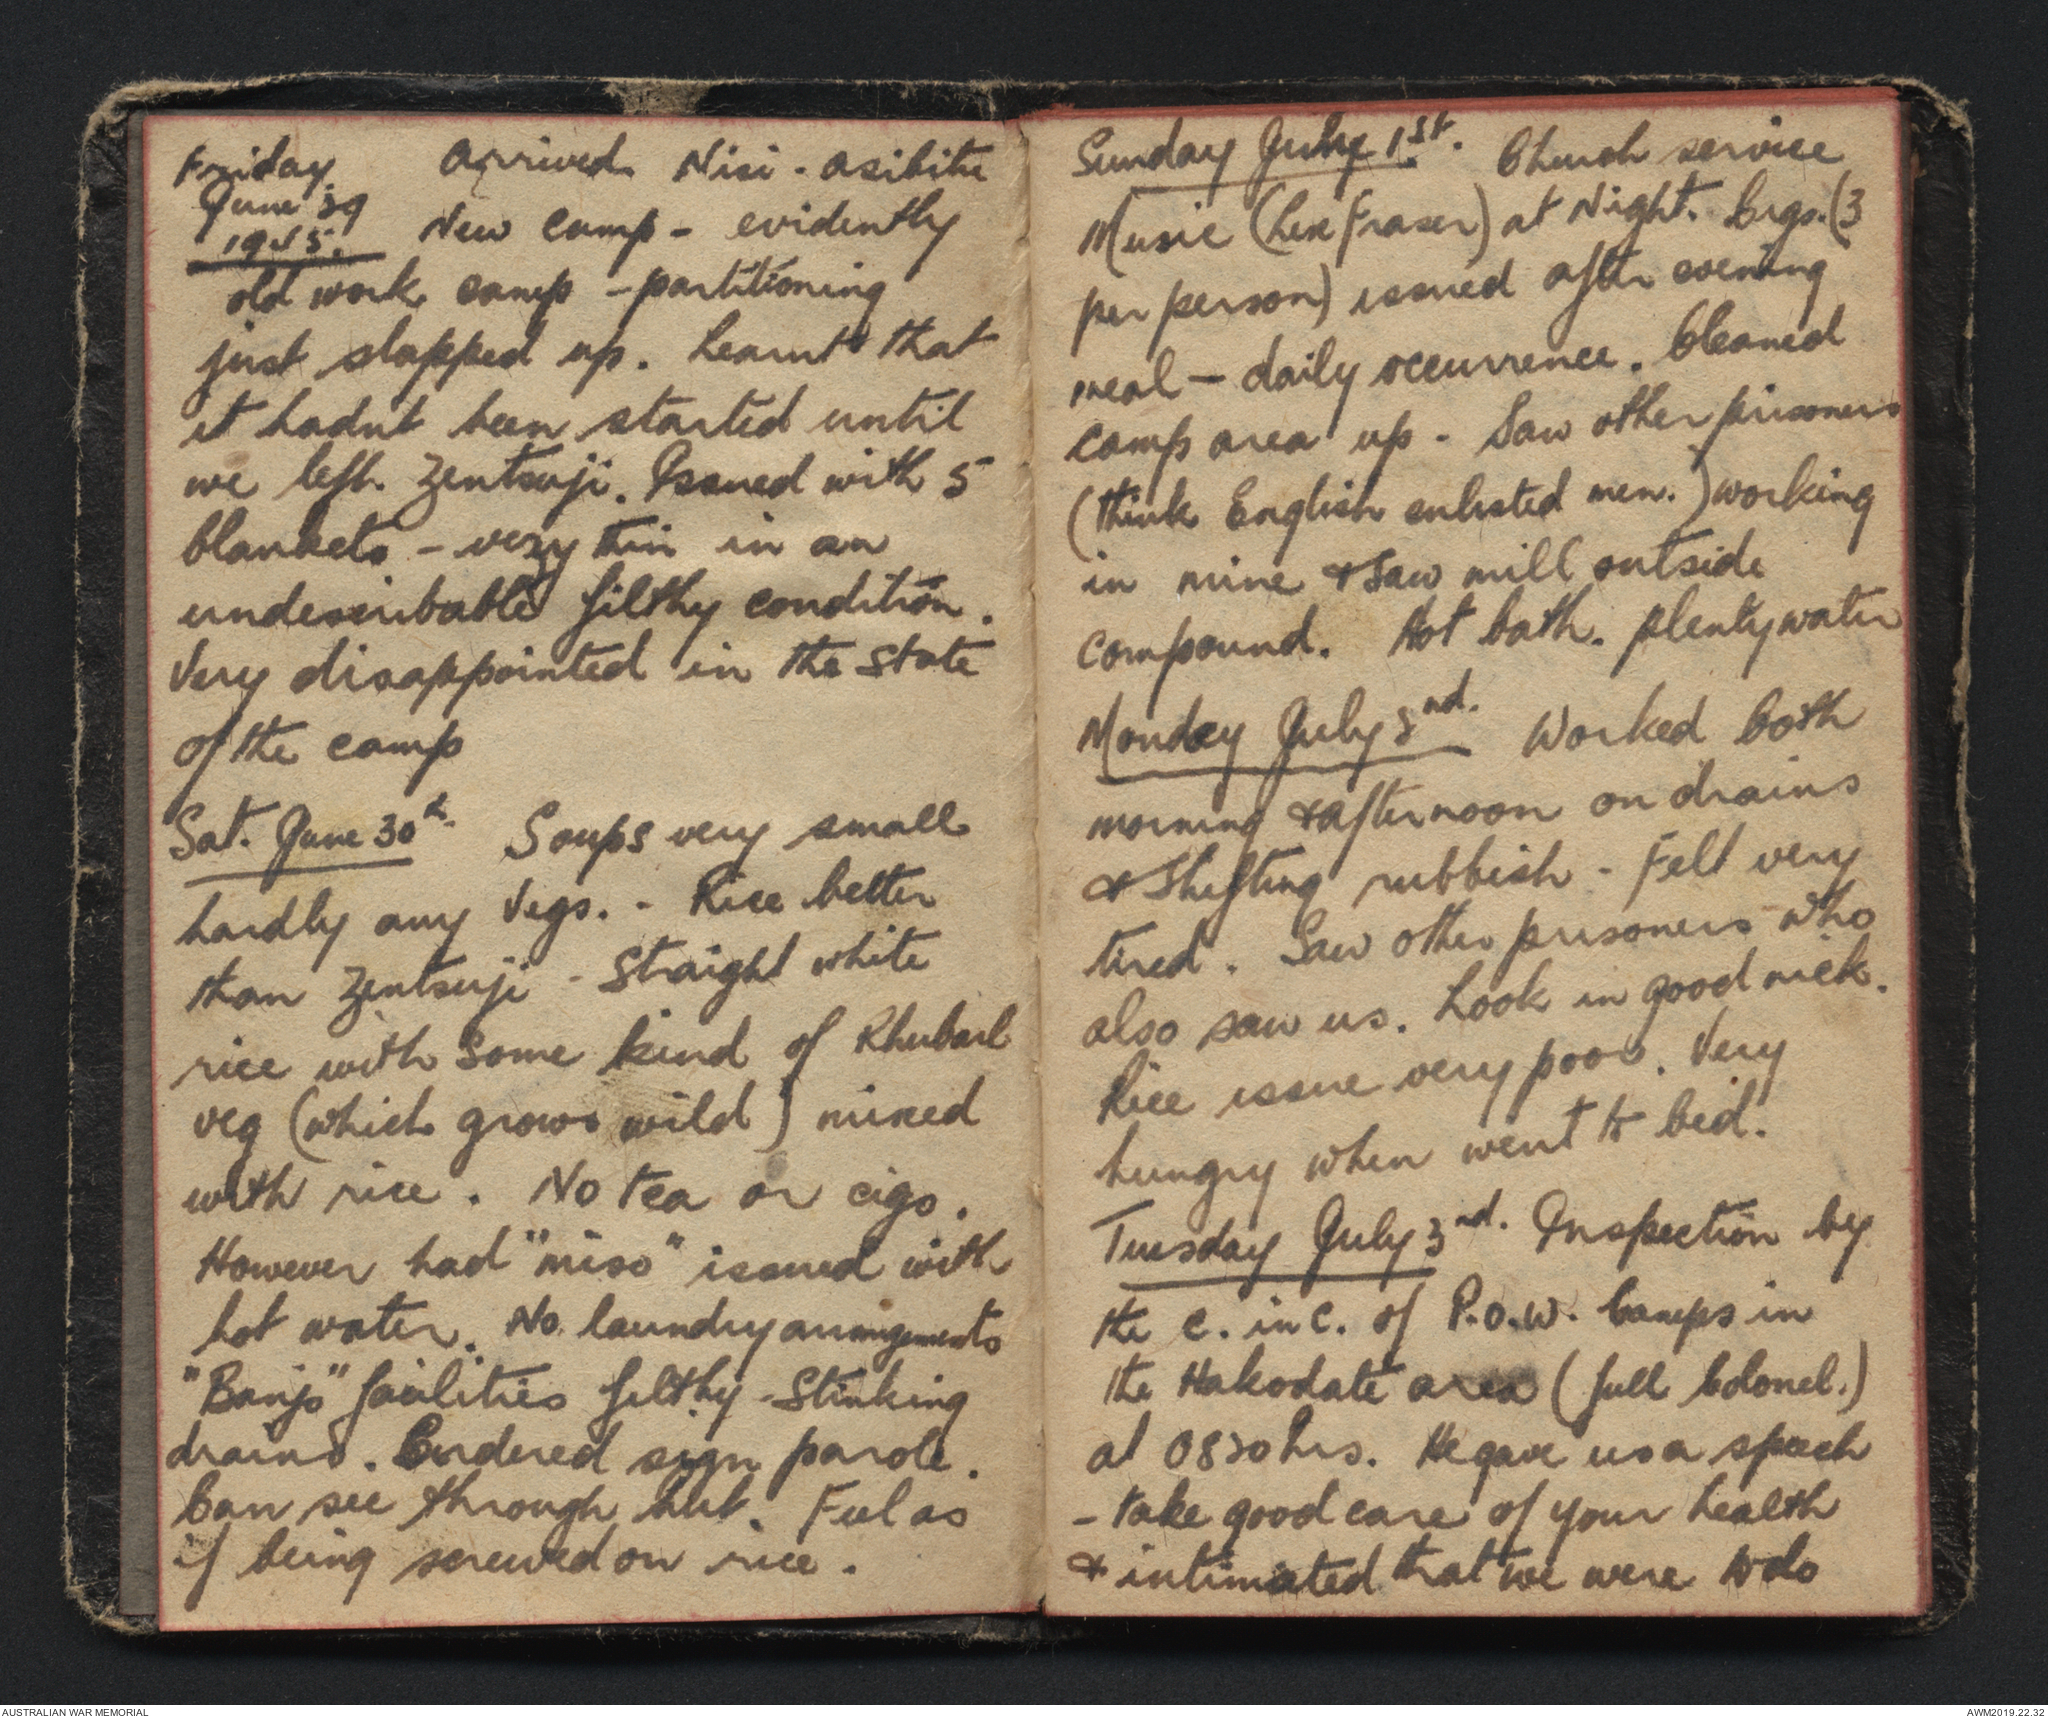 Friday
June 29
1945.
Arrived Nisi-asibitu
New camp - evidently
old work camp - partitioning
just slapped up. Learnt that
it hadnt been started until
we left Zentsuji. Issued with 5
blankets - very thin in an
undescribable filthy condition.
Very disappointed in the state
of the camp
Sat. June 30th. Soups very small
hardly any vegs. - Rice better
than Zentsuji - Straight white
rice with some kind of Rhubarb
veg (which grows wild) mixed
with rice. No tea or cigs.
However had "miso" issued with
hot water. No laundry arrangements
"Banjo" facilities filthy - Stinking
drains. Ordered sign parole.
Can see through hut. Feel as
if being screwed on rice.
Sunday July 1st. Church service
Music (Lex Fraser) at Night. Cigs. (3
per person) issued after evening
meal - daily occurrence. Cleaned
camp area up - Saw other prisoners
(think English enlisted men.) working
in mine & saw mill outside
compound. Hot bath. plenty water
Monday July 2nd. Worked both
morning & afternoon on drains
& shifting rubbish - Felt very
tired. Saw other prisoners who
also saw us. Look in good nick.
Rice issue very poor. Very
hungry when went to bed.
Tuesday July 3nd. Inspection by
the C. in C. of P.O.W. Camps in
the Hakodate area (full Colonel.)
at 0830 hrs. He gave us a speech
- take good care of your health
& intimated that we were to do
AUSTRALIAN WAR MEMORIAL
AWM2019.22.32